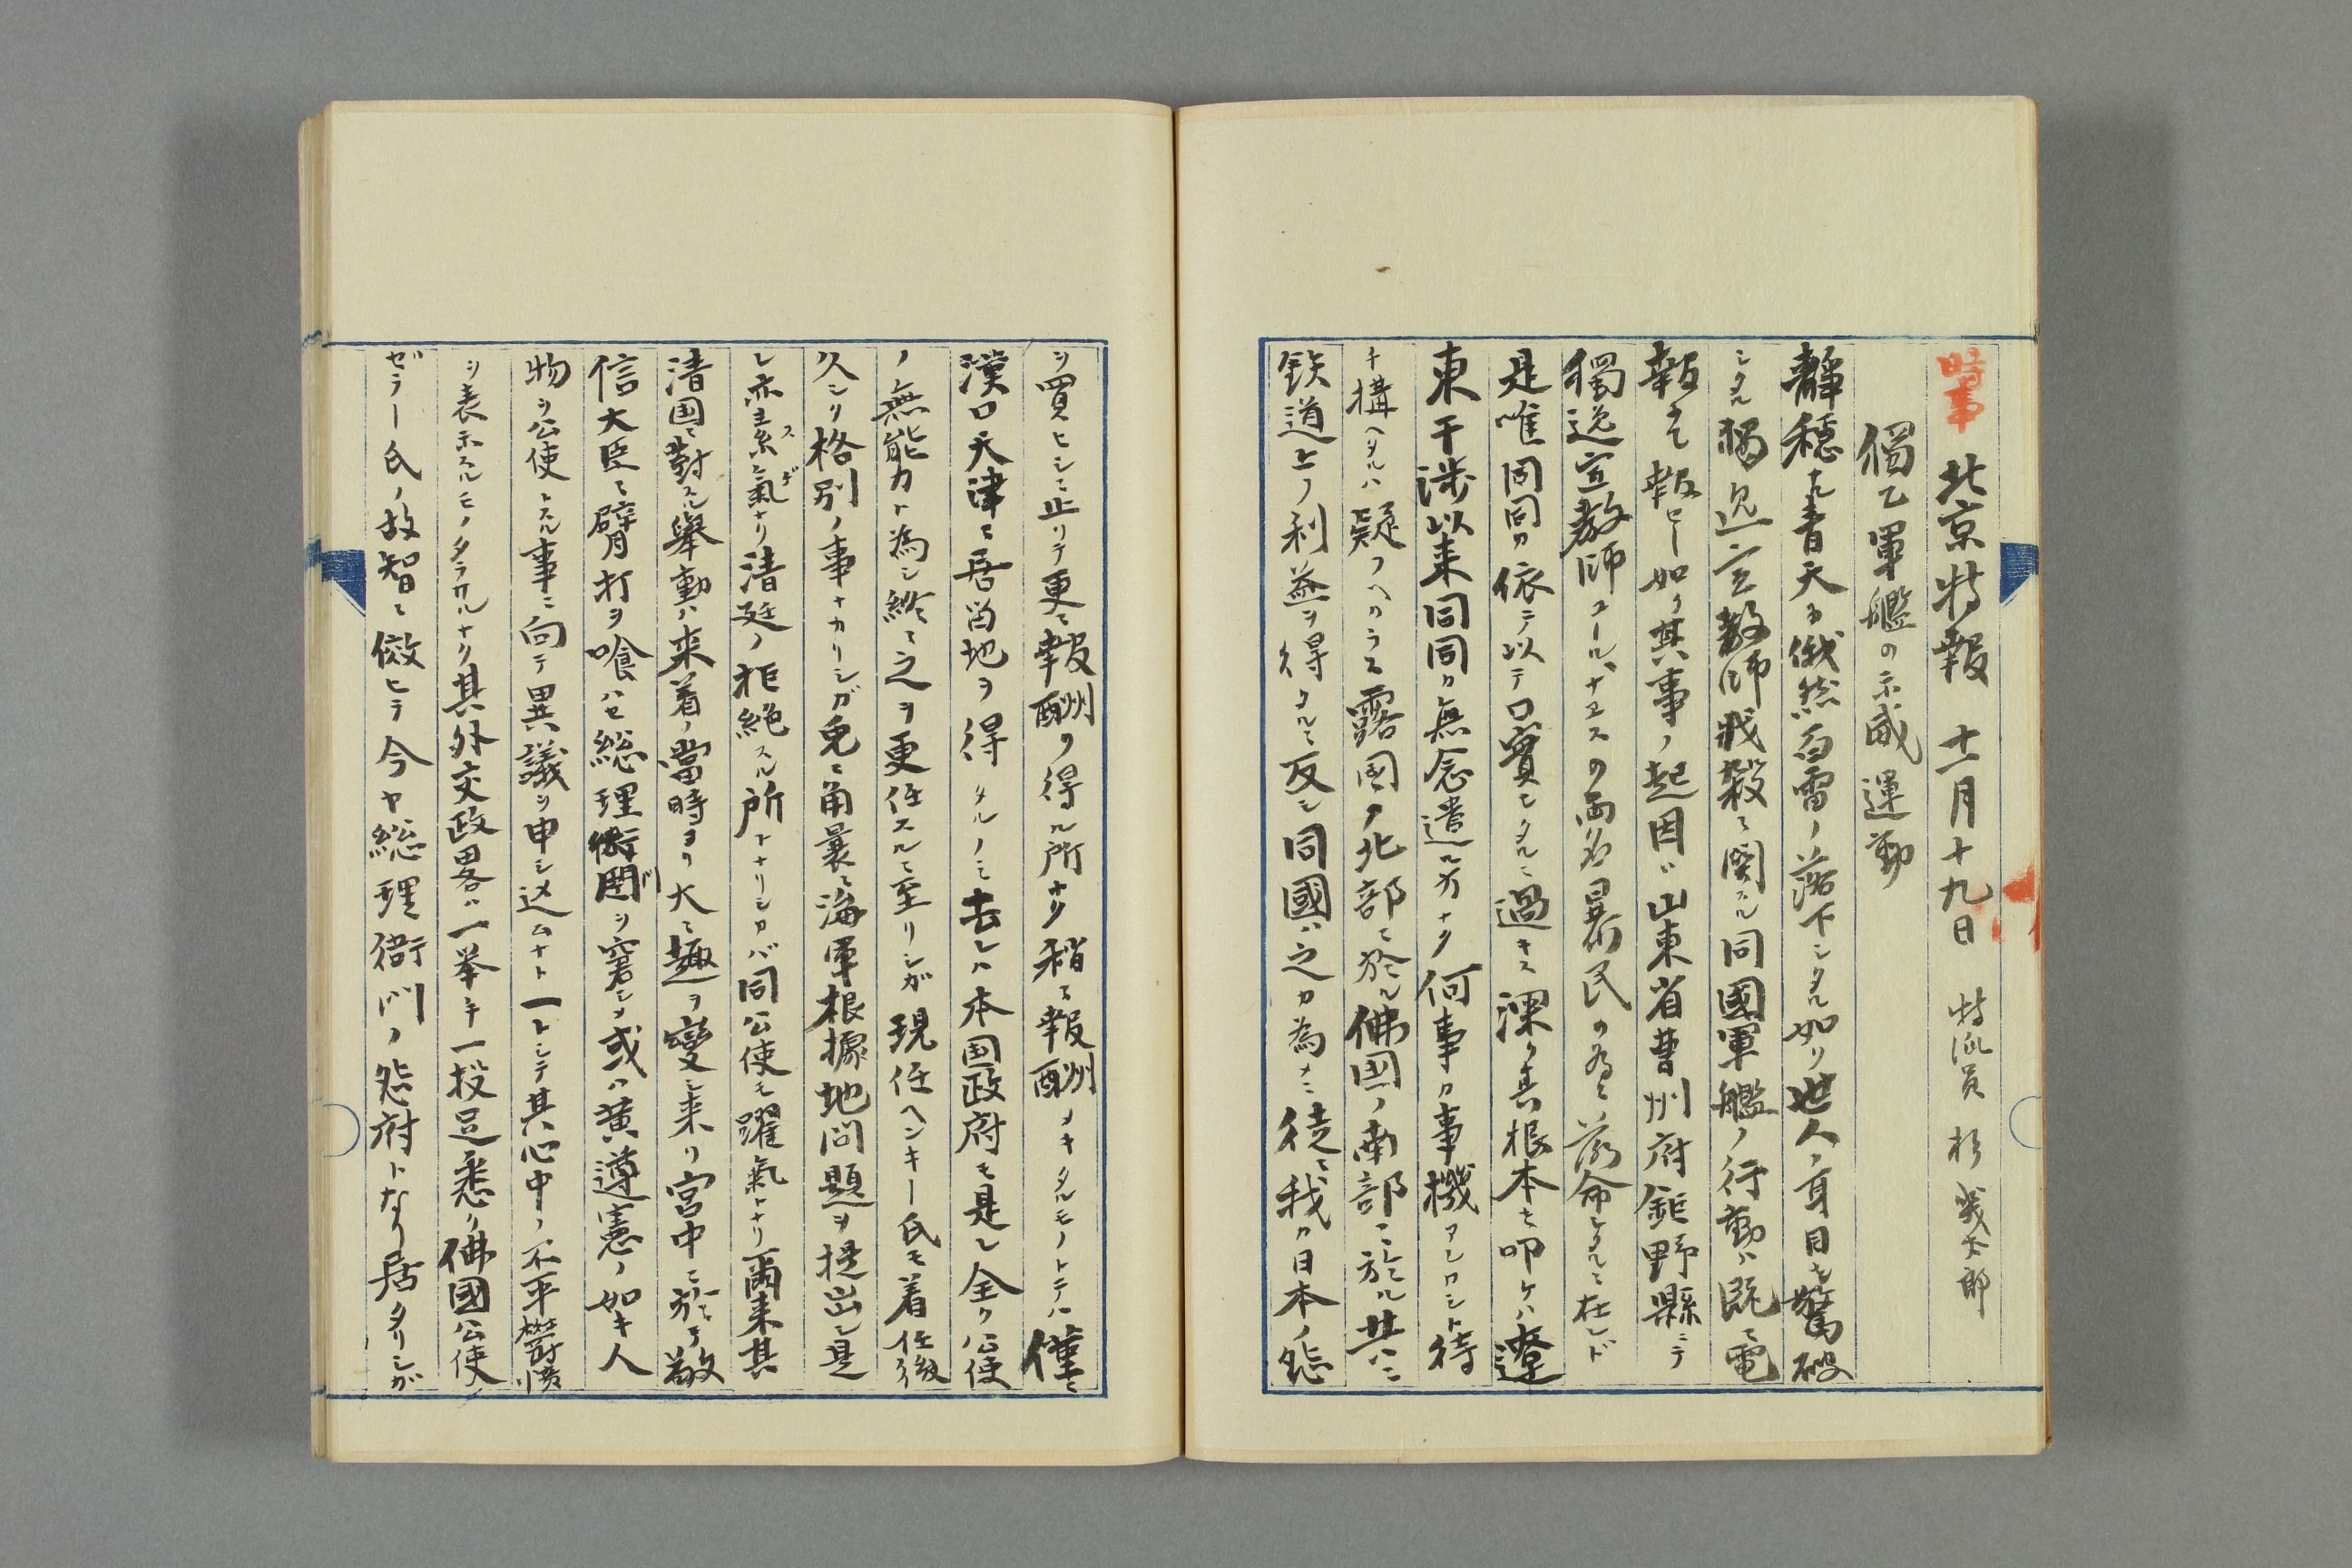 時事 北京特報 十一月十九日 特派員 杉幾太郎
獨乙軍艦の示威運動
靜穏ナル青天ヨリ俄然百雷ノ落下シタル如ク世人ノ耳目ヲ驚破
シタル獨逸宣教師戕殺ニ関スル同國軍艦ノ行動ハ既ニ電
報ニテ報セシ如ク其事ノ起因ハ山東省曹州府鉅野縣ニテ
獨逸宣教師ヱール、ナヱスの両名暴民の為ニ落命シタルニ在レド
是唯同国カ依テ以テ口實トシタルニ過キス深ク其根本ヲ叩ケハ遼
東干渉以来同国カ無念遣ル方ナク何事カ事機アレカシト待
チ構ヘタルハ疑フヘカラス露国ノ北部ニ於ル佛国ノ南部ニ於ル共ニ
鉄道上ノ利益ヲ得タルニ反シ同國ハ之カ為メニ徒ニ我カ日本ノ怨
ヲ買ヒシニ止リテ更ニ報酬ノ得ル所ナク稍々報酬メキタルモノトテハ僅ニ
漢口天津ニ居留地ヲ得タルノミ去レハ本国政府モ是レ全ク公使
ノ無能力ト為シ終ニ之ヲ更任スルニ至リシガ現任ヘンキー氏モ着任後
久シク格別ノ事ナカリシガ兎ニ角曩ニ海軍根據地問題ヲ提出シ是
レ亦素氣ナク清廷ノ拒絶スル所トナリシカバ同公使モ躍氣トナリ爾来其
清国ニ對スル舉動ハ来着ノ當時ヨリ大ニ趣ヲ變シ来リ宮中ニ於テ敬
信大臣ニ臂打ヲ喰ハセ総理衙門ヲ窘シメ或ハ黄遵憲ノ如キ人
物ヲ公使トスル事ニ向テ異議ヲ申シ込ムナト一トシテ其心中ノ不平欝憤
ヲ表示スルモノタラサルナク其外交政畧ハ一挙手一投足悉ク佛國公使
ゼラー氏ノ故智ニ傚ヒテ今ヤ総理衙門ノ怨府トなり居タリシガ